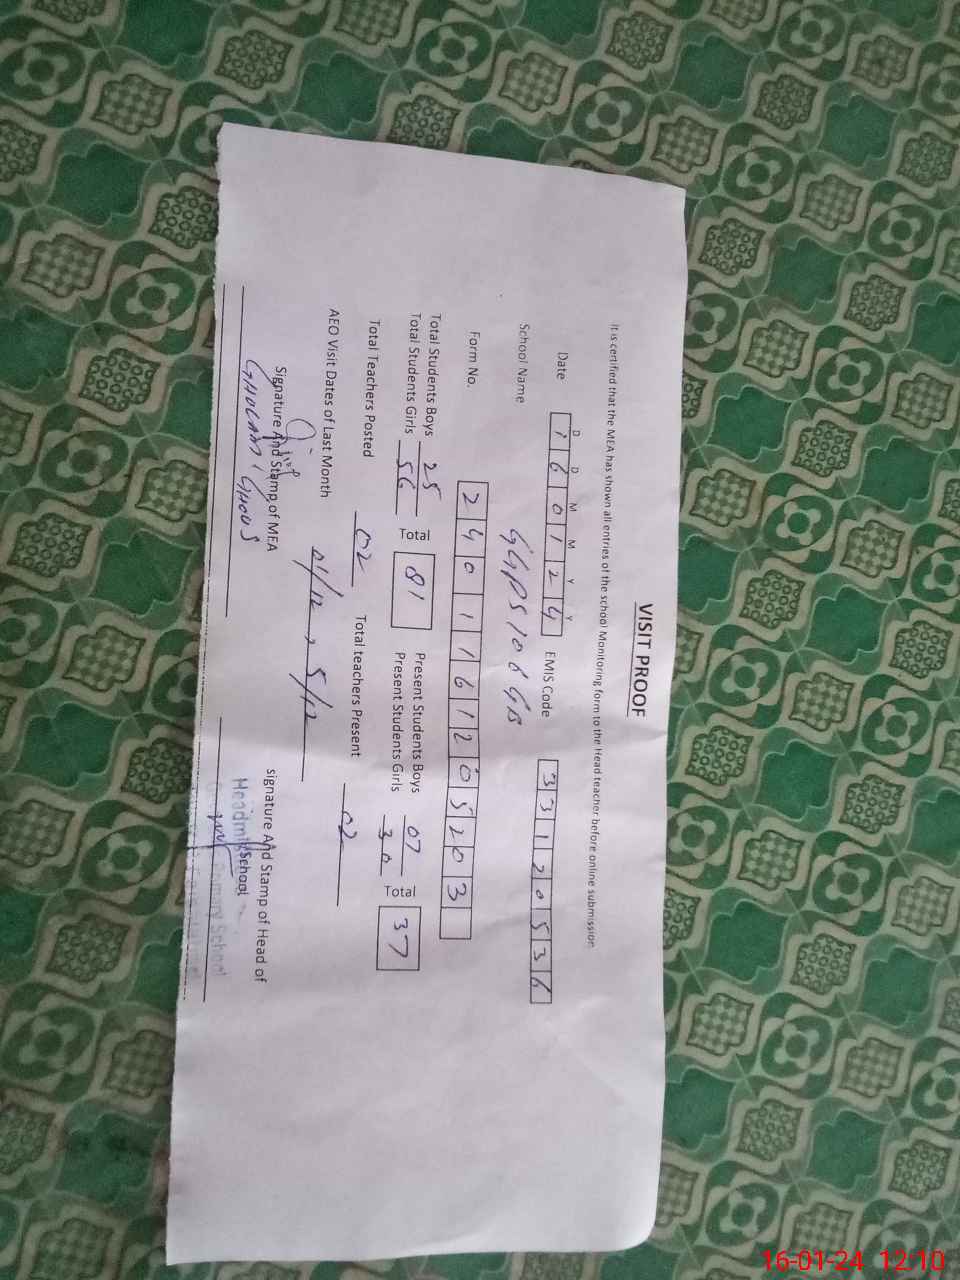 VISIT PROOF
It is certified that the MEA has shown all entries of the school Monitoring form to the Head teacher before online submission
D D M M Y Y
Date 1 6 0 1 2 4 EMIS Code 3 3 1 2 0 5 3 6
School Name GGPS 108 GB
Form No. 2 4 0 1 1 6 1 2 0 5 2 0 3
Total Students Boys 25 Present Students Boys 07
Total Students Girls 56 Total 81 Present Students Girls 30 Total 37
Total Teachers Posted 02 Total teachers Present 02
AEO Visit Dates of Last Month 01/12, 5/12
Signature And Stamp of MEA signature And Stamp of Head of
School
Ghulam Ghous
School
16-01-24 12:10